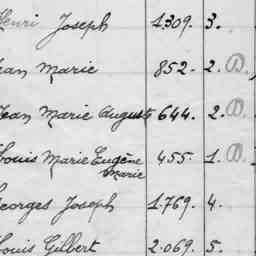 Henri Joseph 1.309. 3.
Jean Marie 852. 2. D.
Jean Marie Auguste 644. 2. D.
Louis Marie Eugène 455. 1. D.
Marie
Georges Joseph 1.769. 4.
Louis Gilbert 2.069. 5.